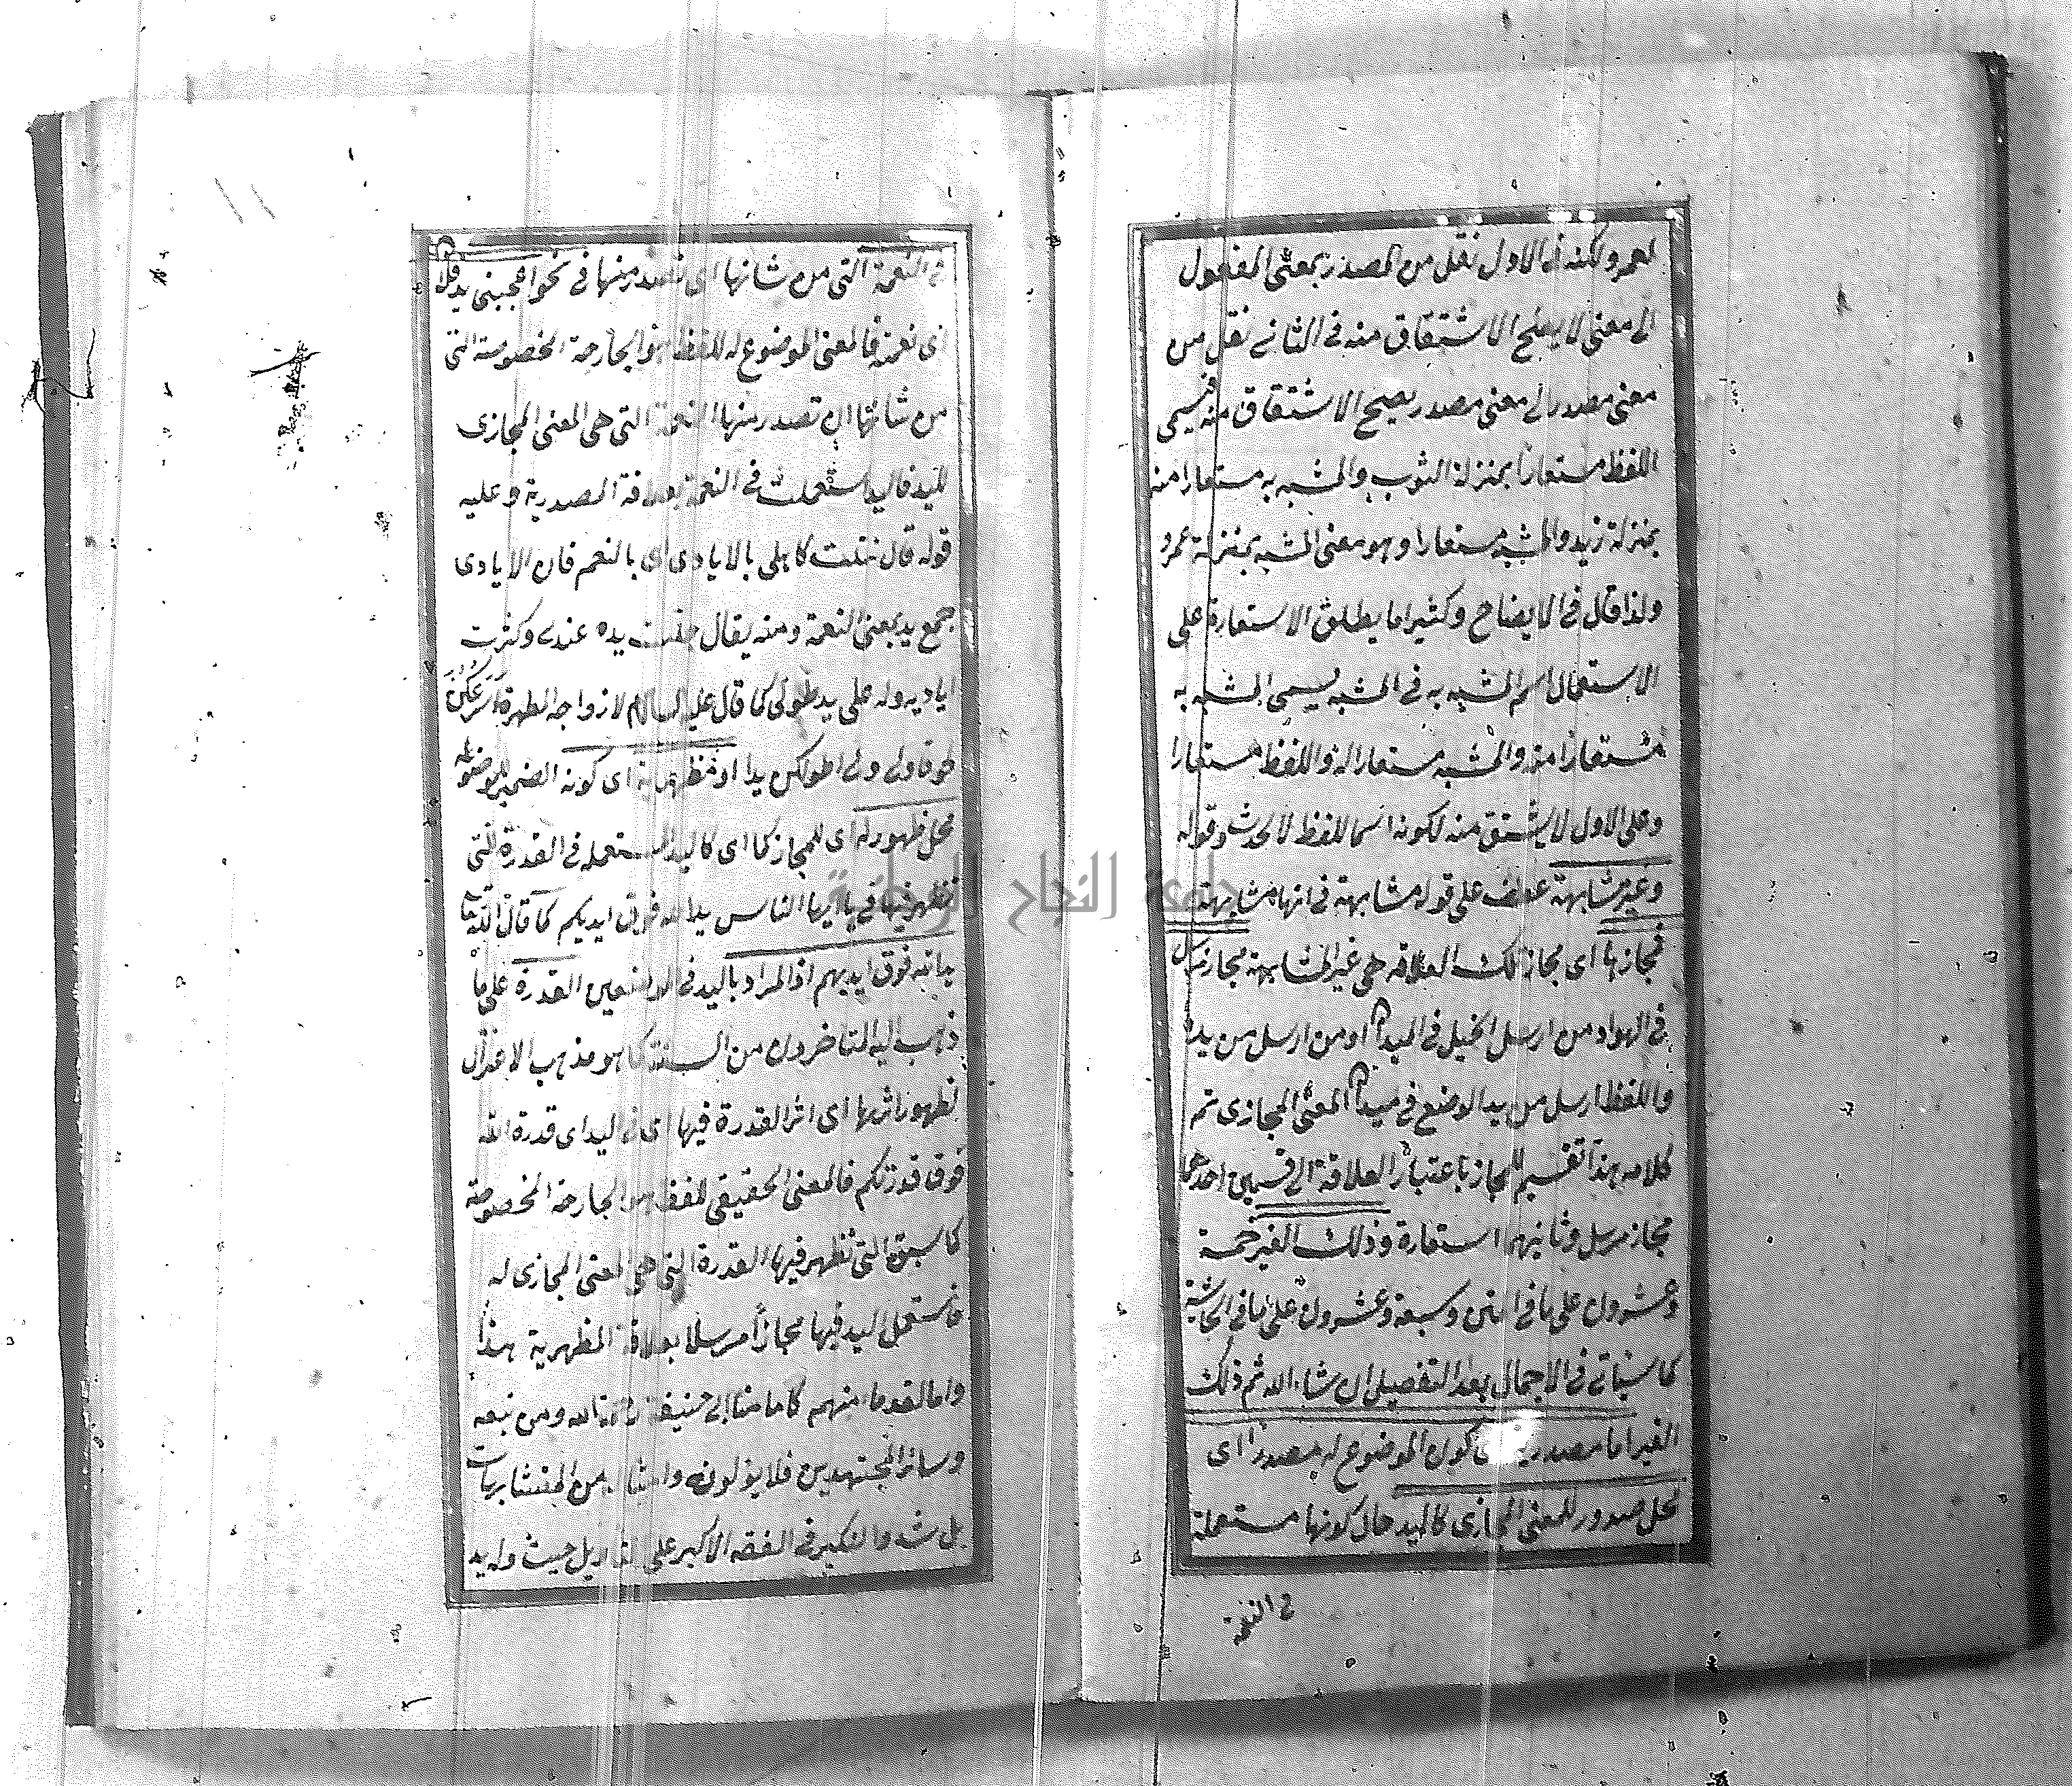 لعمرو لكنه فى الاول نقل من المصدر بمعنى المفعول
الى معنى لا يصلح الاشتقاق منه فى الثانى نقل من
معنى مصدر الى معنى مصدر يصح الاشتقاق منه فيسمى
اللفظ مستعارا بمنزلة الثوب والمشبه به مستعارا منه
بمنزلة زيد والمشبه مستعارا وهو معنى المشبه بمنزلة عمرو
ولذا قال فى الايضاح وكثيرا ما يطلق الاستعارة على
الاستعمال اسم المشبه به فى المشبه يسمى المشبه به
مستعارا منه والمشبه مستعارا له واللفظ مستعارا
وعلى الاول لا يشتق منه لكونه اسما للفظ لا لحدث وقوله
وغير مشابهة عطف على قوله مشابهة فى انها مشابهة
فمجازها اى مجاز تلك العلاقة هى غير المشابهة مجاز مرسل
فى الهواد من ارسل الخيل فى الميدان او من ارسل من يده
واللفظ ارسل من يد الوضع فى ميدان المعنى المجازى تم
كلامه هذا تقسيم للمجاز باعتبار العلاقة الى قسمين احدهما
مجاز مرسل وثانيهما استعارة وذلك الغير خمسة
وعشرون على ما فى المتن وسبعة وعشرون على ما فى الحاشية
كما سيأتى فى الاجمال بعد التفصيل ان شاء الله ثم ذلك
الغير اما مصدرية اى كون الموضوع له مصدرا اى
محل صدور للمعنى المجازى كاليد حال كونها مستعملة
فى النعمة
جامعة النجاح الوطنية
١١
فى النعمة التى من شانها اى تصدر منها فى نحو اعجبنى يد فلان
اى نعمته فالمعنى الموضوع له للفظ هو الجارحة المخصوصة التى
من شانها ان تصدر منها النعمة التى هى المعنى المجازى
لليد فاليد استعملت فى النعمة بعلاقة المصدرية وعليه
قوله قال ثقلت كاهلى بالايادى اى بالنعم فان الايادى
جمع يد بمعنى النعمة ومنه يقال جلت يده عندى وكثرت
اياديه وله على يد طولى كما قال عليه السلام لازواجه المطهرة اسرعكن
لحوقا ولى اطولكن يدا او مظهرية اى كونه الضمير للموضوع له
محل ظهور له اى للمجاز كما اى كاليد المستعمله فى القدرة التى
تظهر فيها فى يا ايها الناس يد الله فوق ايديكم كما قال الله تعالى
يد الله فوق ايديهم اذ المراد باليد فى الموضعين القدرة على ما
ذهب اليه المتأخرون من السنة كما هو مذهب الاعتزال
لظهور اثرها اى اثر القدرة فيها اى فى اليد اى قدرة الله
فوق قدرتكم فالمعنى الحقيقى للفظ هو الجارحة المخصوصة
كما سبق التى تظهر فيها القدرة التى هى المعنى المجازى له
فاستعمل اليد فيها مجازا مرسلا بعلاقة المظهرية هذا
واما القدماء منهم كامامنا ابى حنيفة رحمه الله ومن تبعه
وسائر المجتهدين فلا يؤولونه وامثاله من المتشابهات
بل شدد النكير فى الفقه الاكبر على التأويل حيث وله يد